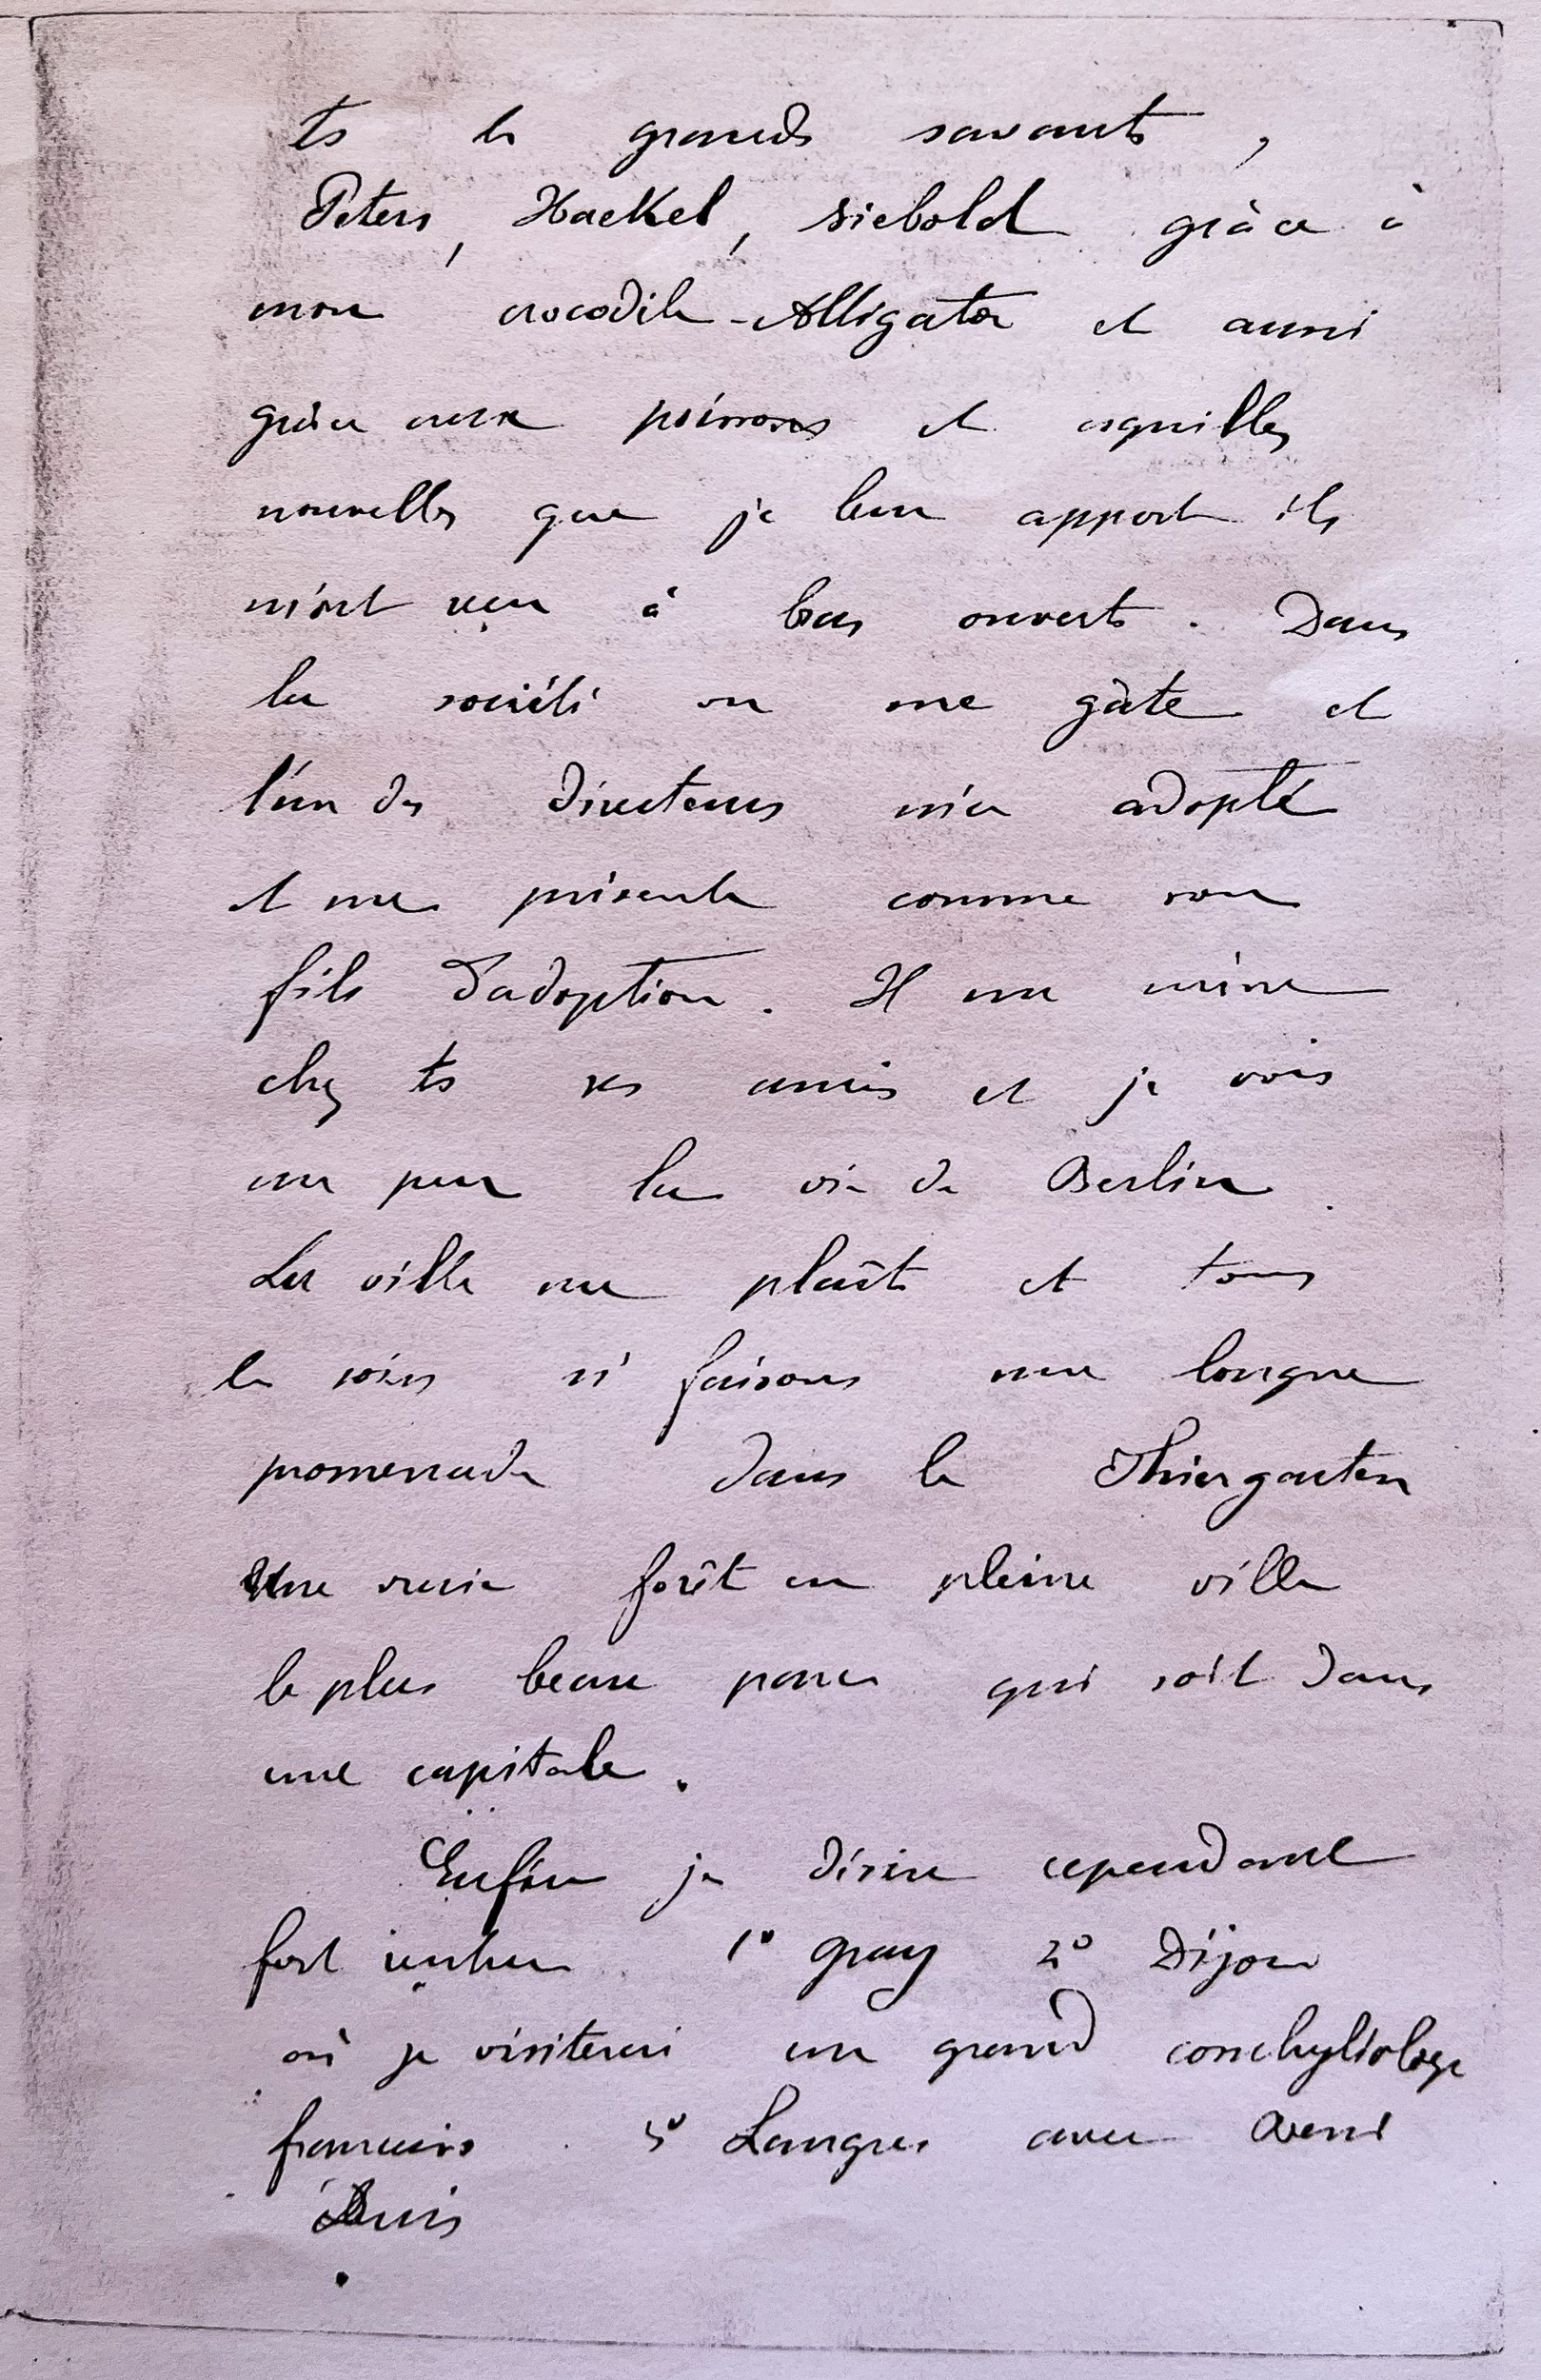 ts les grands savants,
Peters, Haekel, Siebold grâce à
mon crocodile-Alligator et aussi
grâce aux poissons et coquilles
nouvelles que je leur apporte ils
m'ont reçu à bras ouverts. Dans
la société on me gâte et
l'un des directeurs m'a adopté
et me présente comme son
fils d'adoption. Il me mène
chez ts ses amis et je vois
un peu la vie de Berlin.
La ville me plaît et tous
les soirs faisons une longue
promenade dans le Thiergarten
Une vraie forêt en pleine ville
le plus beau parc qui soit dans
une capitale.
Enfin je désire cependant
fort rentrer 1º Gray 2º Dijon
où je visiterai un grand conchyliologe
français 3º Langres avec